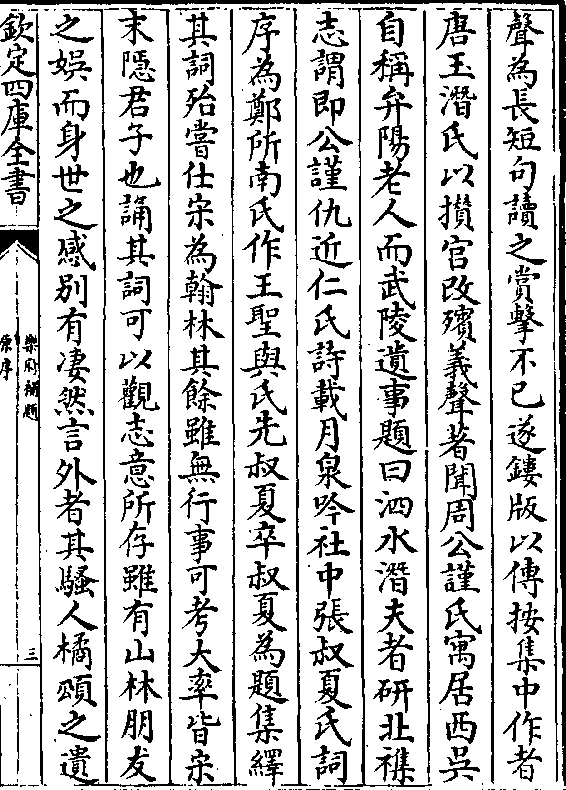 聲為長短句讀之賞擊不已遂鏤版以傳按集中作者
唐玉潛氏以攢宫改殯義聲著聞周公謹氏寓居西吳
自稱弁陽老人而武陵遺事題曰泗水潛夫者研北雜
志謂即公謹仇近仁氏詩載月泉吟社中張叔夏氏詞
序為鄭所南氏作王聖與氏先叔夏卒叔夏為題集繹
其詞殆嘗仕宋為翰林其餘雖無行事可考大率皆宋
末隱君子也誦其詞可以觀志意所存雖有山林朋友
之娯而身世之感别有凄然言外者其騷人橘頌之遺
欽定四庫全書
樂府補題
原序
三